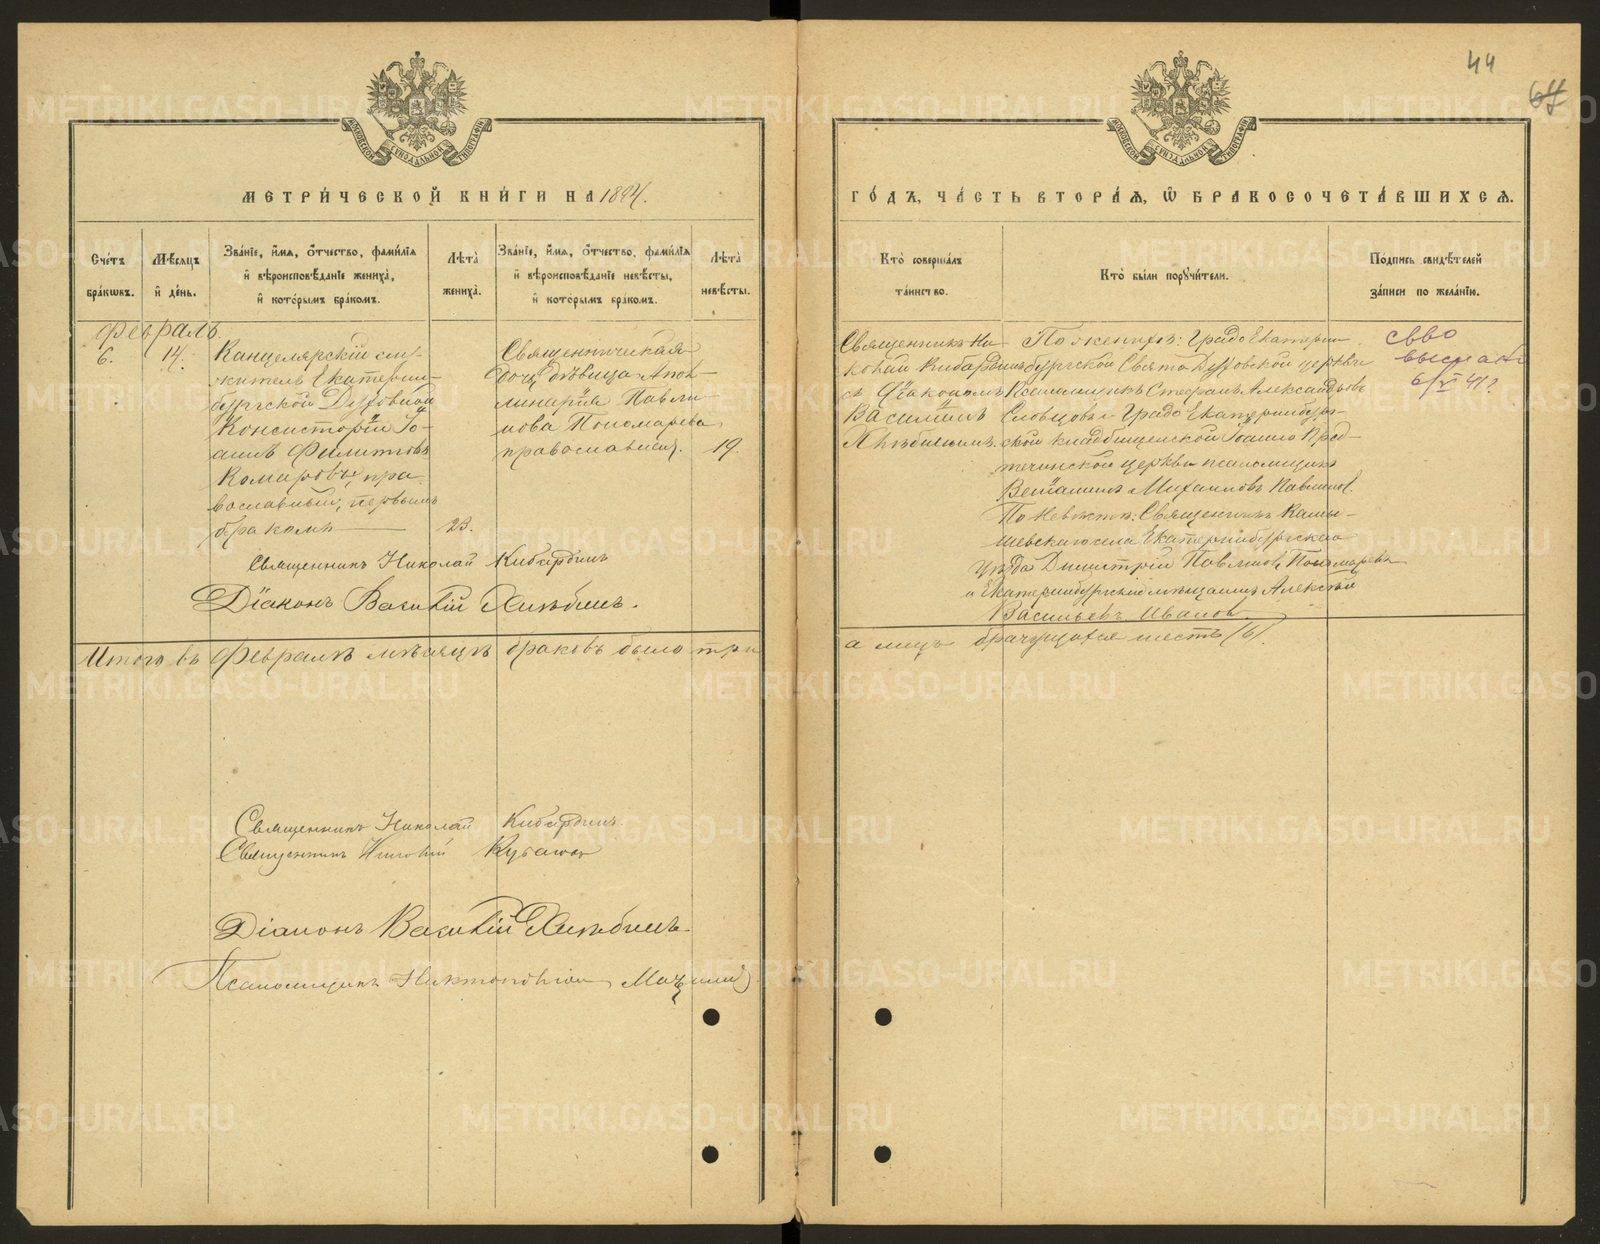 44
64
МОСКОВСКОЙ СѴНОДАЛЬНОЙ ТИПОГРАФІИ
МОСКОВСКОЙ СѴНОДАЛЬНОЙ ТИПОГРАФІИ
МЕТРИ́ЧЕСКОЙ КНИ́ГИ НА 1894.
ГО́ДЪ, ЧА́СТЬ ВТОРА́Я, Ѡ БРАКОСОЧЕТА́ВШИХСЯ.
Сче́тъ бра́кѡвъ.
Мѣ́сяцъ и҆ де́нь.
Зва́нїе, и҆́мя, ѻ҆́тчество, фами́лїя и҆ вѣроисповѣ́данїе жениха̀, и҆ кото́рымъ бра́комъ.
Лѣ́та жениха̀.
Зва́нїе, и҆́мя, ѻ҆́тчество, фами́лїя и҆ вѣроисповѣ́данїе невѣ́сты, и҆ кото́рымъ бра́комъ.
Лѣ́та невѣ́сты.
Кто̀ соверша́лъ та́инство.
Кто̀ бы́ли порꙋчи́тели.
По́дпись свидѣ́телей за́писи по жела́нїю.
Февраль.
6.
14.
Канцелярскій слу-
житель Екатерин-
бургской Духовной
Консисторіи Іо-
аннъ Филипповъ
Комаровъ, пра-
вославный, первымъ
бракомъ
23.
Священническая
дочь дѣвица Апол-
линарія Павли-
нова Пономарева
православная.
19.
Священникъ Ни-
колай Кибардинъ
съ Діакономъ
Василіемъ
Хлѣбинымъ.
По женихѣ: Градо Екатерин-
бургской Свято Духовской церкви
Псаломщикъ Стефанъ Александровъ
Словцовъ и Градо Екатеринбург-
ской кладбищенской Іоанно Пред-
течинской церкви псаломщикъ
Веніаминъ Михаиловъ Павлиновъ.
По Невѣстѣ: Священникъ Камы-
шевскаго села Екатеринбургскаго
уѣзда Димитрій Павлиновъ Пономаревъ
и Екатеринбургскій мѣщанинъ Алексѣй
Васильевъ Ивановъ.
Священникъ Николай Кибардинъ
Діаконъ Василій Хлѣбинъ.
Итого въ Февралѣ мѣсяцѣ браковъ было три
а лицъ брачущихся шесть (6).
Священникъ Николай Кибардинъ.
Священникъ
Діаконъ Василій Хлѣбинъ.
Псаломщикъ
METRIKI.GASO-URAL.RU